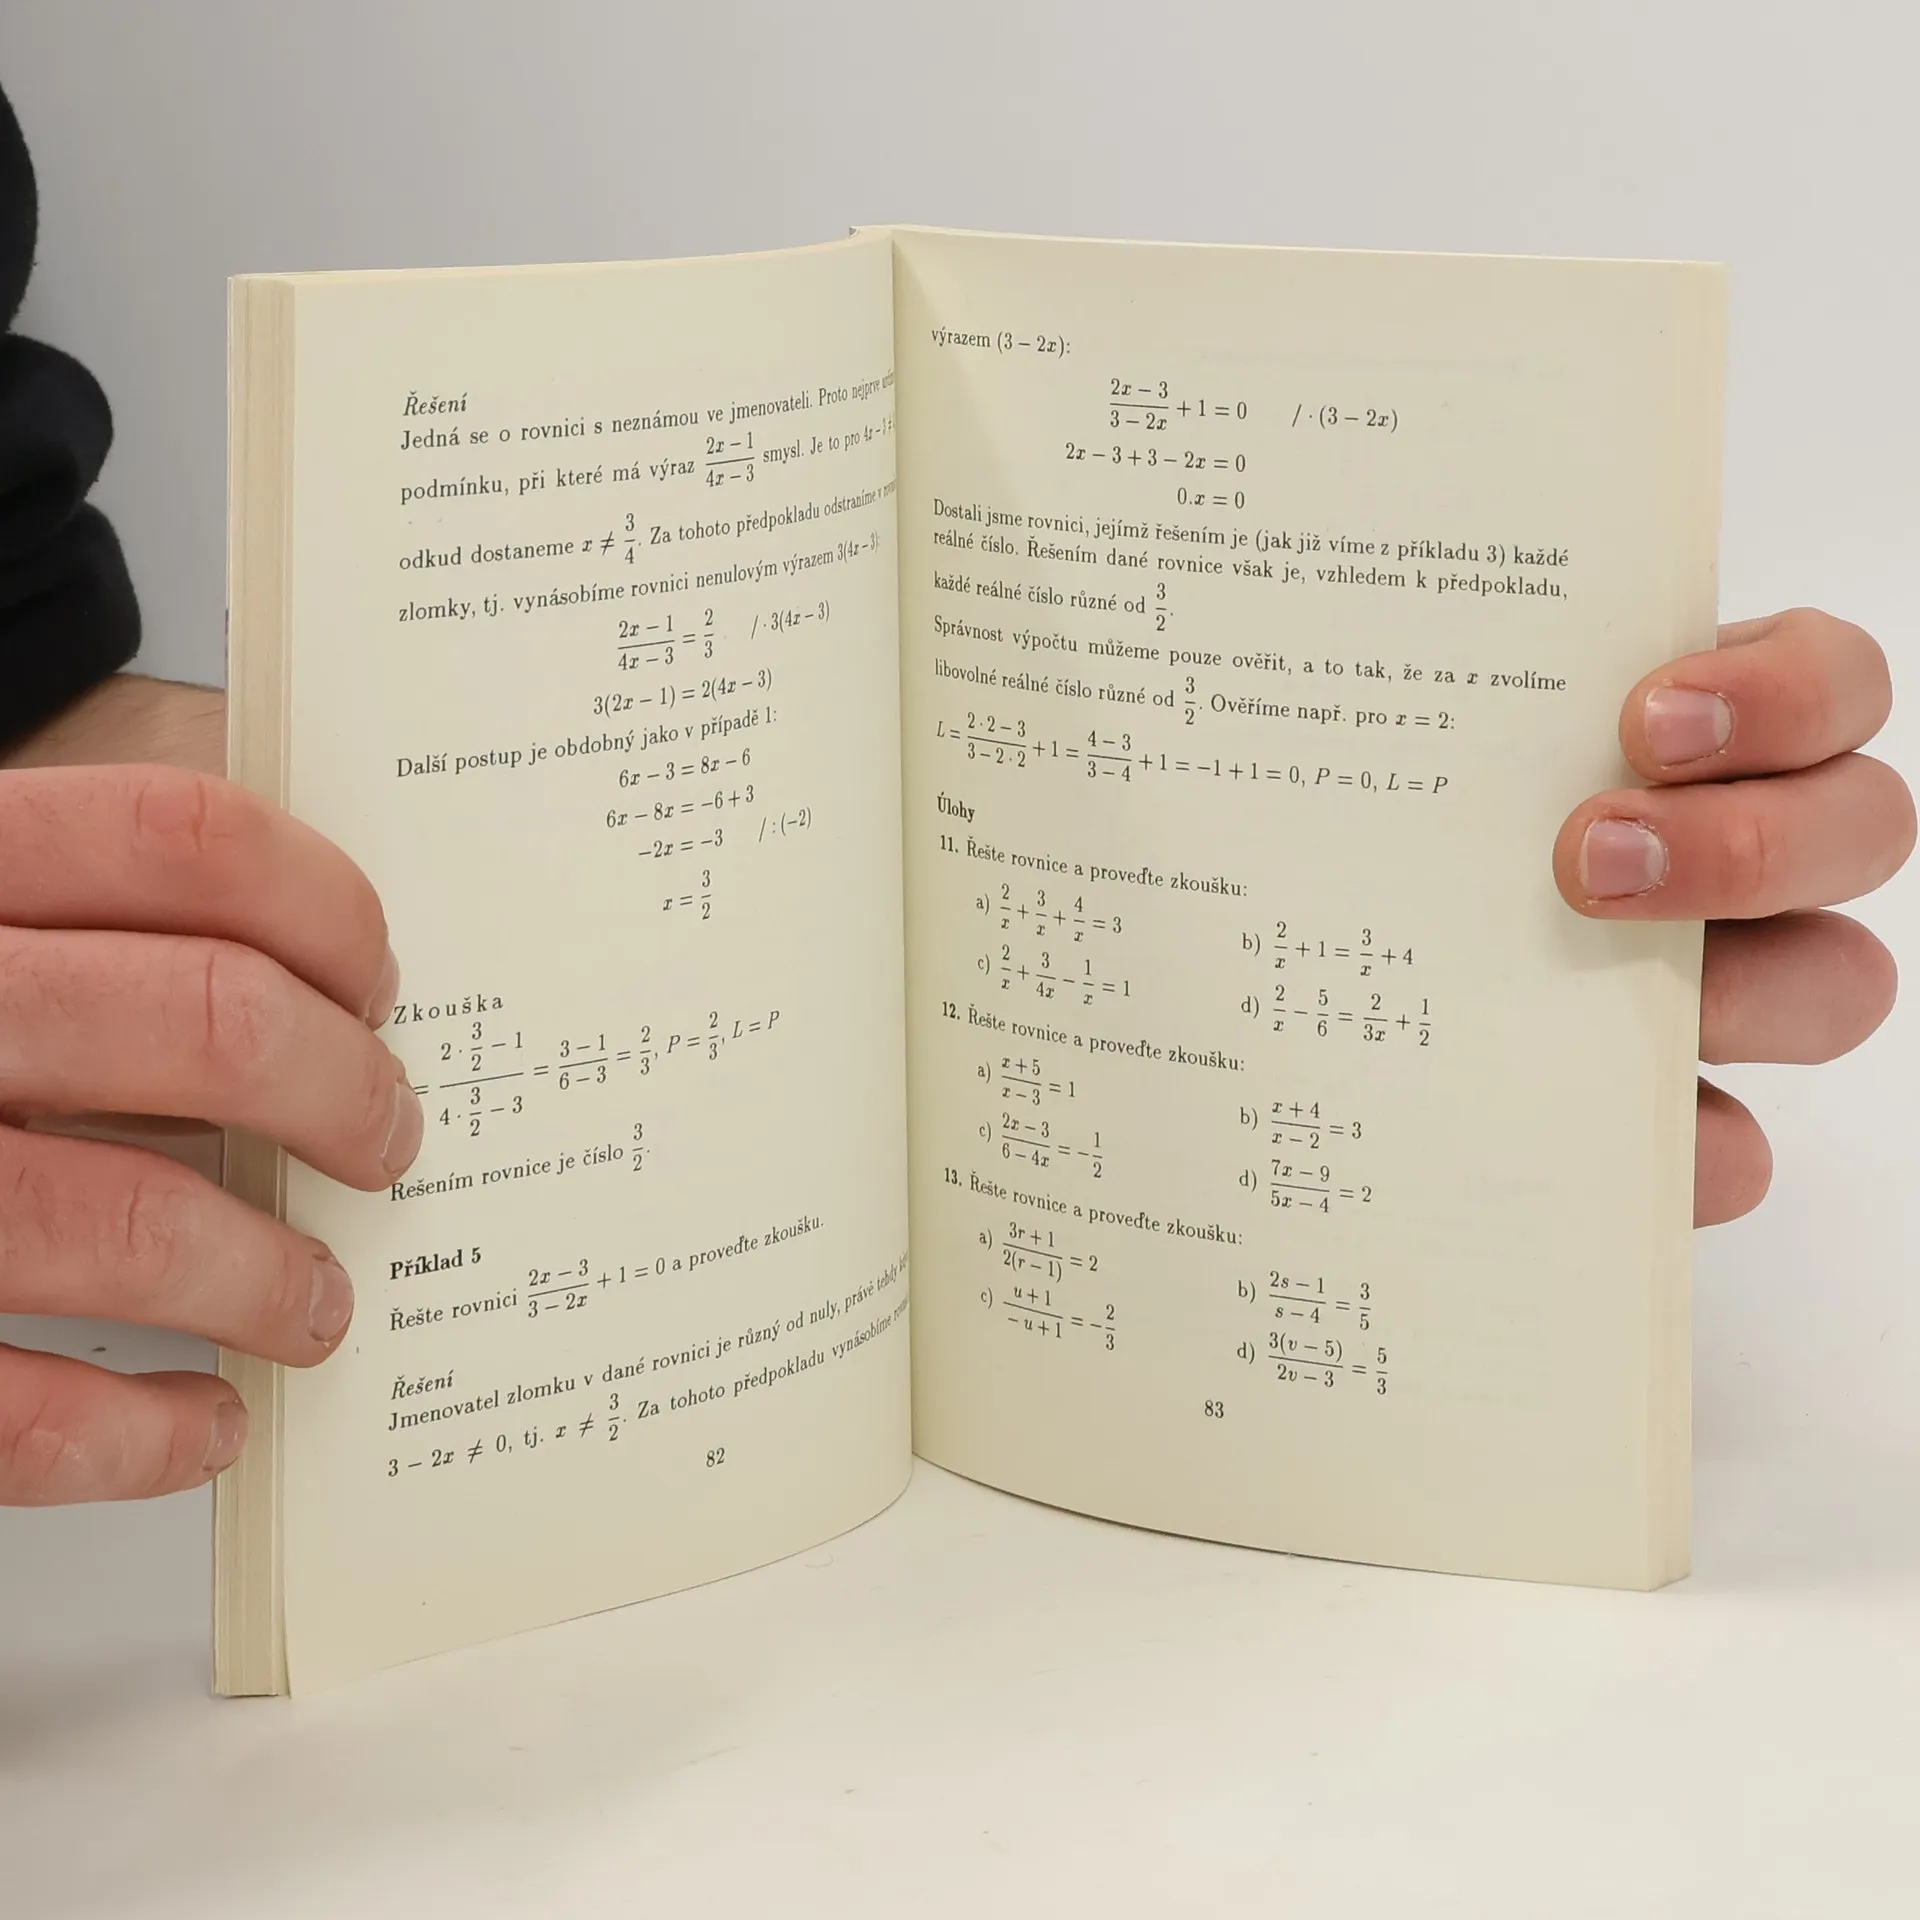 Řešení
Jedná se o rovnici s neznámou ve jmenovateli. Proto nejprve
podmínku, při které má výraz (2x − 1)/(4x − 3) smysl. Je to pro 4x − 3 ≠
odkud dostaneme x ≠ 3/4. Za tohoto předpokladu odstraníme v
zlomky, tj. vynásobíme rovnici nenulovým výrazem 3(4x − 3):
(2x − 1)/(4x − 3) = 2/3 / · 3(4x − 3)
3(2x − 1) = 2(4x − 3)
Další postup je obdobný jako v případě 1:
6x − 3 = 8x − 6
6x − 8x = −6 + 3
−2x = −3 / : (−2)
x = 3/2
Zkouška
= (2 · 3/2 − 1)/(4 · 3/2 − 3) = (3 − 1)/(6 − 3) = 2/3, P = 2/3, L = P
Řešením rovnice je číslo 3/2.
Příklad 5
Řešte rovnici (2x − 3)/(3 − 2x) + 1 = 0 a proveďte zkoušku.
Řešení
Jmenovatel zlomku v dané rovnici je různý od nuly, právě tehdy
3 − 2x ≠ 0, tj. x ≠ 3/2. Za tohoto předpokladu vynásobíme
82
výrazem (3 − 2x):
(2x − 3)/(3 − 2x) + 1 = 0 / · (3 − 2x)
2x − 3 + 3 − 2x = 0
0.x = 0
Dostali jsme rovnici, jejímž řešením je (jak již víme z příkladu 3) každé
reálné číslo. Řešením dané rovnice však je, vzhledem k předpokladu,
každé reálné číslo různé od 3/2.
Správnost výpočtu můžeme pouze ověřit, a to tak, že za x zvolíme
libovolné reálné číslo různé od 3/2. Ověříme např. pro x = 2:
L = (2 · 2 − 3)/(3 − 2 · 2) + 1 = (4 − 3)/(3 − 4) + 1 = −1 + 1 = 0, P = 0, L = P
Úlohy
11. Řešte rovnice a proveďte zkoušku:
a) 2/x + 3/x + 4/x = 3 b) 2/x + 1 = 3/x + 4
c) 2/x + 3/4x − 1/x = 1 d) 2/x − 5/6 = 2/3x + 1/2
12. Řešte rovnice a proveďte zkoušku:
a) (x + 5)/(x − 3) = 1 b) (x + 4)/(x − 2) = 3
c) (2x − 3)/(6 − 4x) = −1/2 d) (7x − 9)/(5x − 4) = 2
13. Řešte rovnice a proveďte zkoušku:
a) (3r + 1)/(2(r − 1)) = 2 b) (2s − 1)/(s − 4) = 3/5
c) (u + 1)/(−u + 1) = −2/3 d) (3(v − 5))/(2v − 3) = 5/3
83